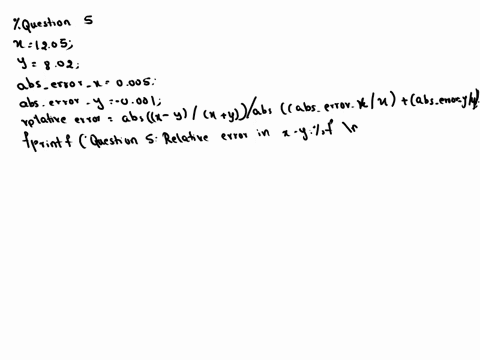 %Question 5
x=12.05;
y = 8.02;
abs_error_x = 0.005;
abs_error_y = -0.001;
relative error = abs((x-y) / (x+y))/abs ((abs_error_x/x) + (abs_error_y/y)
fprintf ('Question 5: Relative error in x-y:%.f \n